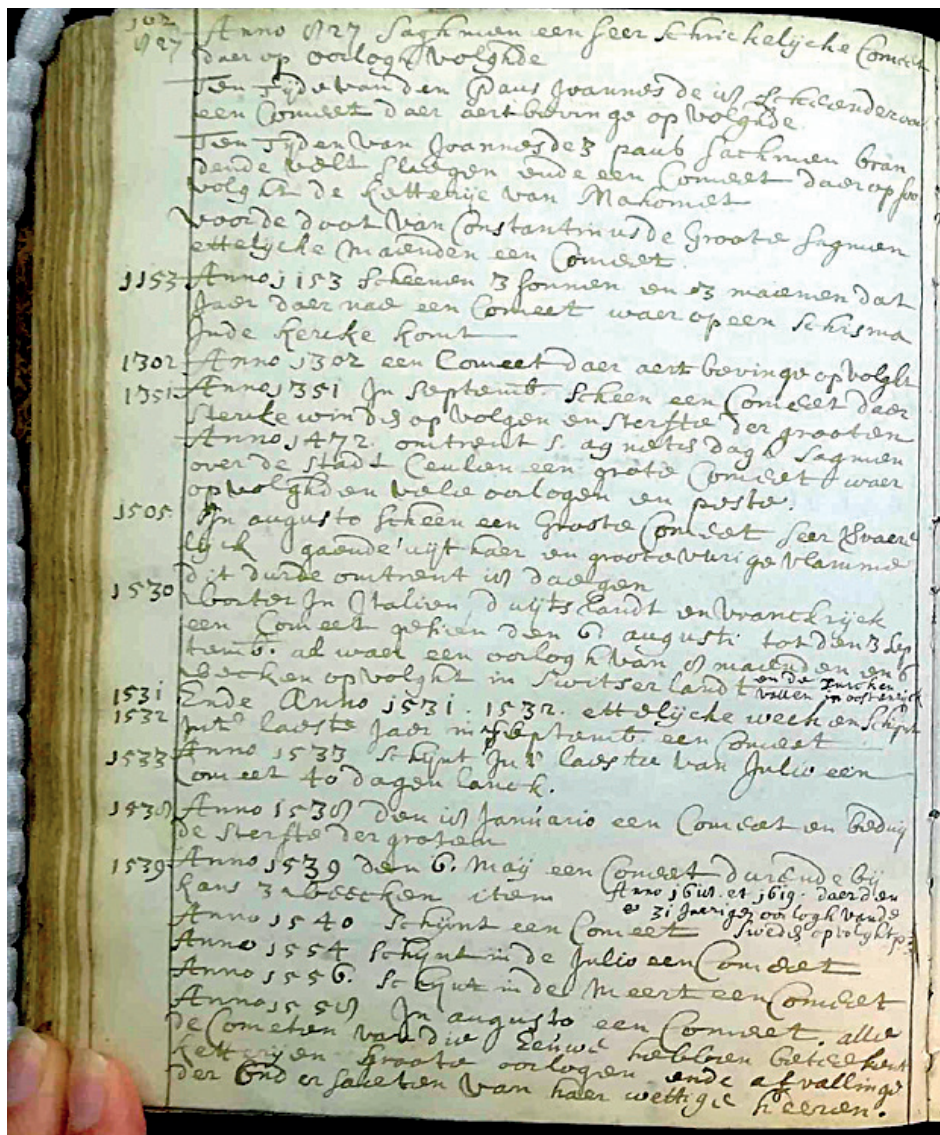 102
827 Anno 827 Saghmen een seer schrickelijcke Comeet
daer op oorlogh volghde
Ten tijde van den Paus Joannes de 18 scheender
een Comeet daer aertbevinge op volghde
Ten Tijden van Joannes de 3 paus sachmen bran
dende velt slaegen ende een Comeet daer op soo
volght de ketterije van Mahomet
voor de doot van Constantinus de Groote sagmen
ettelijcke maenden een Comeet
1153 Anno 1153 scheenen 3 sonnen en 3 maenen dat
Jaer daer nae een Comeet waer op een schisma
Inde kercke komt
1302 Anno 1302 een Comeet daer aertbevinge op volght
1351 Anno 1351 In Septemb. scheen een Comeet daer
stercke winden op volgen en sterfte der grooten
Anno 1472. omtrent S. agnetis dagh sagmen
over de stadt Ceulen een grote Comeet waer
op volghden vele oorlogen en peste.
1505 In augusto scheen een Groote Comeet seer
lyck gaende uijt haer en groote vurige vlamme
dit durde omtrent 18 daegen
1530 worter In Italien, duijtslandt en vranckrijck
een Comeet gesien den 6 augusti tot den 3 Sep
temb. al waer een oorlogh van 8 maenden en 6
weecken op volght in Switserlandt en de Turcken
vallen in oostenrijck
1531 Ende Anno 1531. 1532. ettelijcke weeken schijnt
1532 laeste Jaer in Septemb. een Comeet
1533 Anno 1533 schijnt In't laeste van Julio een
Comeet 40 dagen lanck.
1538 Anno 1538 den 18 Januario een Comeet en beduij
de sterfte der groten
1539 Anno 1539 den 6. Maij een Comeet durende bij
kans 3 weecken item Anno 1618. et 1619. daer den
31 Jaerigen oorlogh vande
Anno 1540 schijnt een Comeet Sweden op volght
Anno 1554 schijnt in de Julio een Comeet
Anno 1556. schijnt in de Meert een Comeet
Anno 1558 In augusto een Comeet. alle
de Cometen van die Eeuwe hebben beteekent
ketterijen Groote oorlogen ende afvallinge
der Ondersaeten van haer wettige heeren.